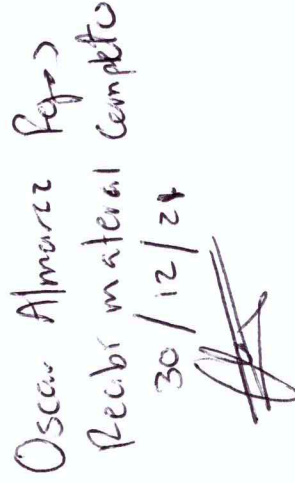 Oscar Almaraz
Recibi material completo
30/12/21